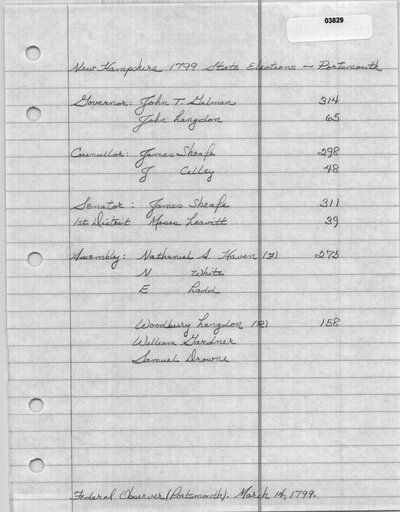 03829
New Hampshire 1799 State Elections - Portsmouth
Governor: John T. Gilman 314
John Langdon 65
Councillor: James Sheafe 298
J Cilley 48
Senator: James Sheafe 311
1st District Moses Leavitt 39
Assembly: Nathaniel A. Haven (F) 275
N White
E Ladd
Woodbury Langdon (R) 158
William Gardner
Samuel Drowne
Federal Observer (Portsmouth). March 14, 1799.